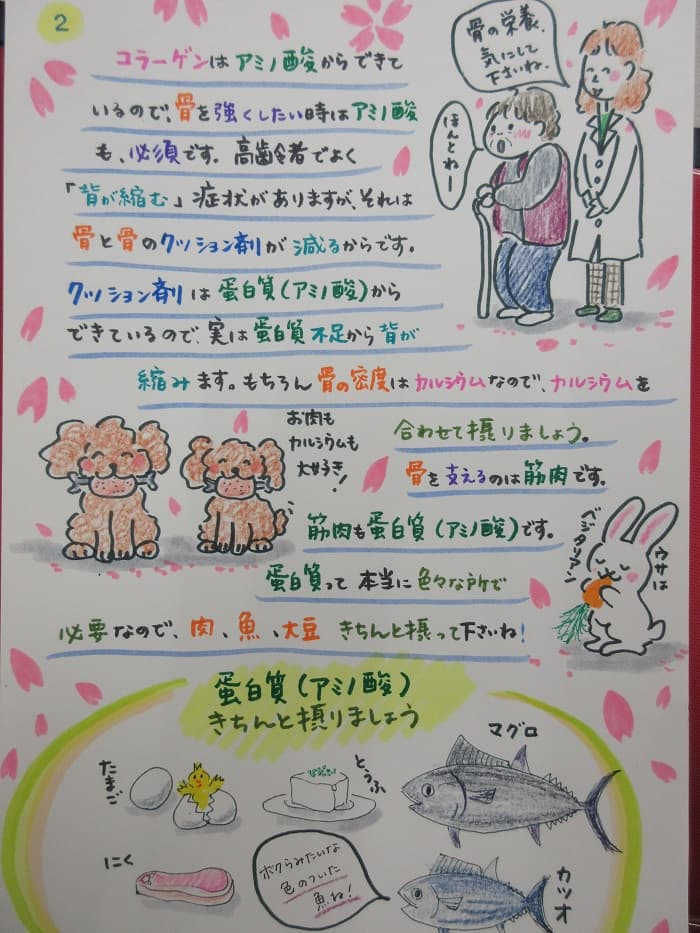 2
コラーゲンはアミノ酸からできて
いるので、骨を強くしたい時はアミノ酸
も、必須です。高齢者でよく
「背が縮む」症状がありますが、それは
骨と骨のクッション剤が減るからです。
クッション剤は蛋白質(アミノ酸)から
できているので、実は蛋白質不足から背が
縮みます。もちろん骨の密度はカルシウムなので、カルシウムを
合わせて摂りましょう。
骨を支えるのは筋肉です。
筋肉も蛋白質(アミノ酸)です。
蛋白質って本当に色々な所で
必要なので、肉、魚、大豆きちんと摂って下さいね!
骨の栄養、
気にして
下さいね。
ほんとねー
お肉も
カルシウムも
大好き!
ウサは
ベジタリアン
蛋白質(アミノ酸)
きちんと摂りましょう
たまご
とうふ
マグロ
にく
ボクらみたいな
色のついた
魚ね!
カツオ